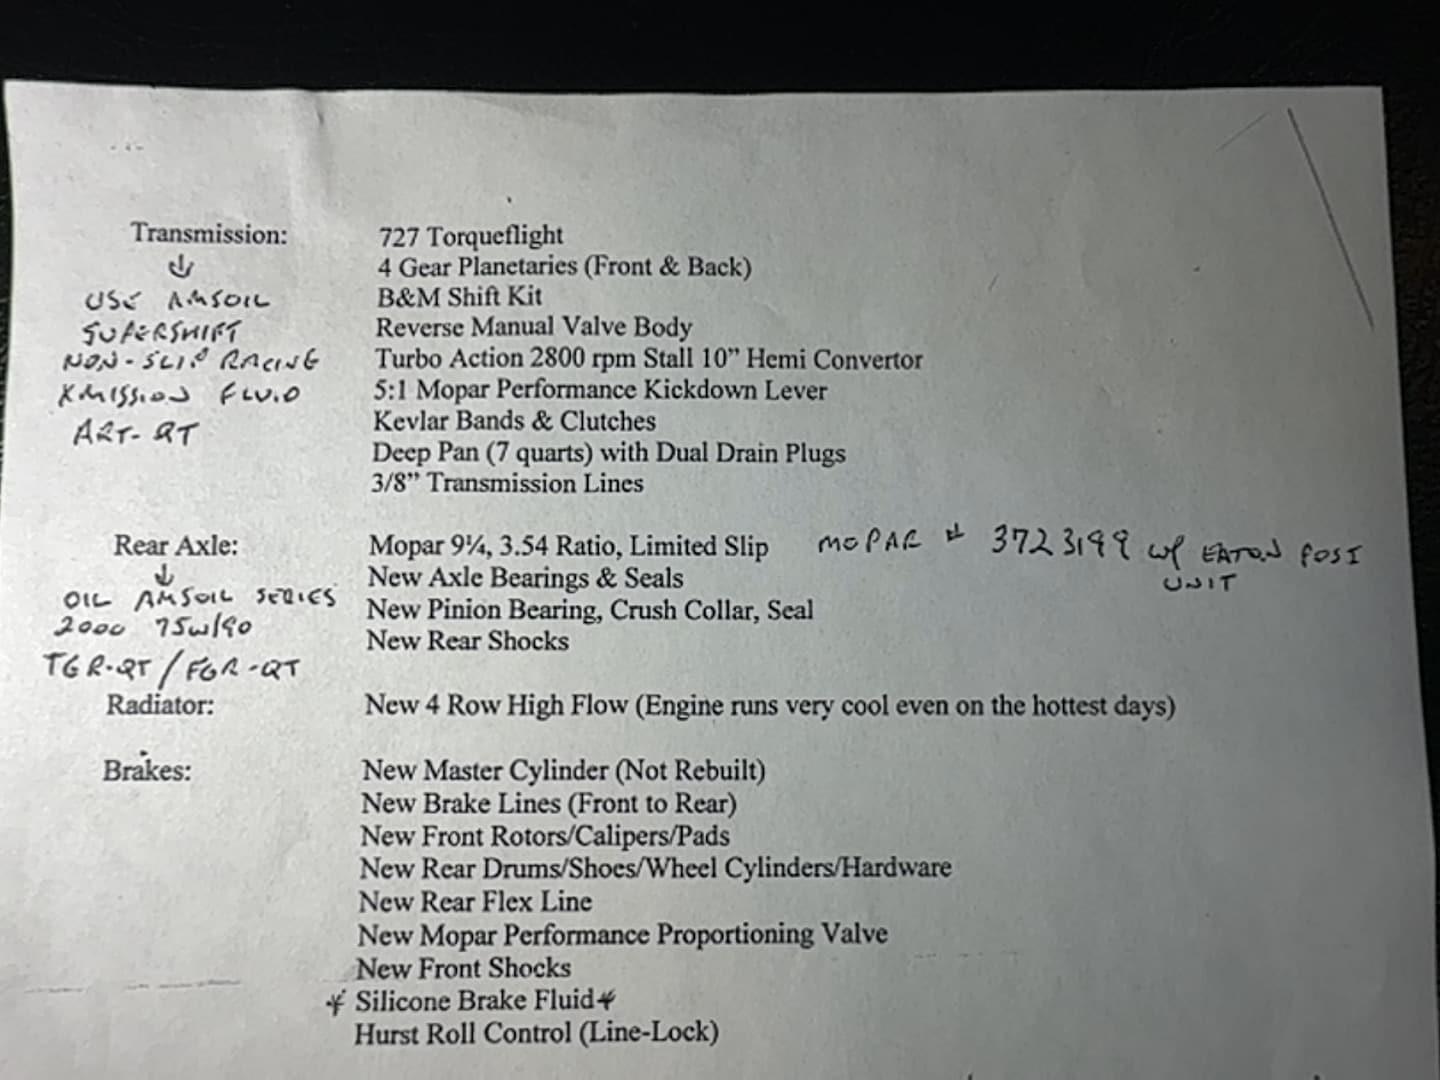 Transmission: 727 Torqueflight
↓ 4 Gear Planetaries (Front & Back)
USE AMSOIL B&M Shift Kit
SUPERSHIFT Reverse Manual Valve Body
NON-SLIP RACING Turbo Action 2800 rpm Stall 10” Hemi Convertor
XMISSION FLUID 5:1 Mopar Performance Kickdown Lever
ART-QT Kevlar Bands & Clutches
Deep Pan (7 quarts) with Dual Drain Plugs
3/8” Transmission Lines
Rear Axle: Mopar 9¼, 3.54 Ratio, Limited Slip MOPAR # 3723199 w/ EATON POSI UNIT
↓ New Axle Bearings & Seals
OIL AMSOIL SERIES New Pinion Bearing, Crush Collar, Seal
2000 75W/90 New Rear Shocks
TGR-QT / FGR-QT
Radiator: New 4 Row High Flow (Engine runs very cool even on the hottest days)
Brakes: New Master Cylinder (Not Rebuilt)
New Brake Lines (Front to Rear)
New Front Rotors/Calipers/Pads
New Rear Drums/Shoes/Wheel Cylinders/Hardware
New Rear Flex Line
New Mopar Performance Proportioning Valve
New Front Shocks
* Silicone Brake Fluid *
Hurst Roll Control (Line-Lock)